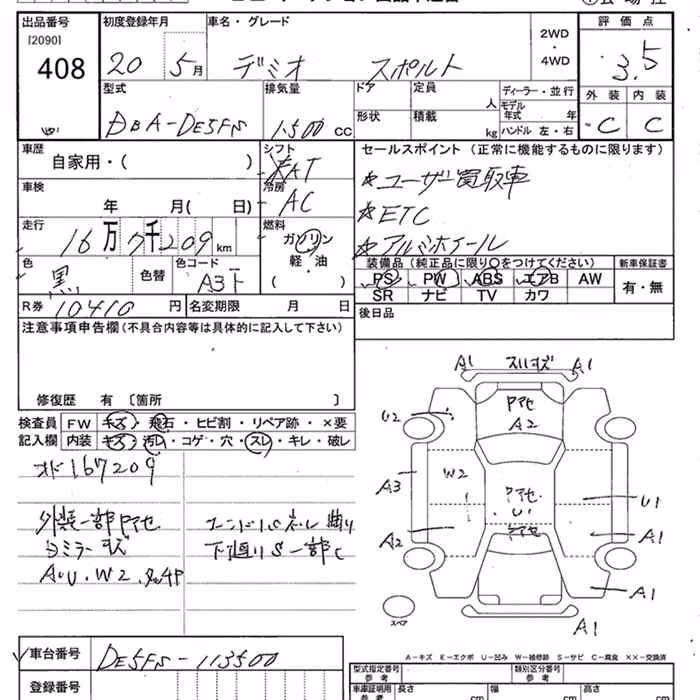 出品番号 初度登録年月 車名・グレード 2WD・4WD 評価点
[2090]
408 20 5月 デミオ スポルト 3.5
型式 排気量 ドア 定員 人 ディーラー・並行 外装 内装
DBA-DE5FS 1500 CC 形状 積載 kg モデル年式 年 C C
ハンドル 左・右
車歴 シフト セールスポイント (正常に機能するものに限ります)
自家用・( ) AT
☆ユーザー買取車
車検 冷房
年 月( 日) AC
☆ETC
走行 燃料
16万7千209km ガソリン
☆アルミホイール
軽・油
( )
色 色替 色コード
黒 A3F
装備品(純正品に限り○をつけてください) 新車保証書
PS PW ABS エアB AW 有・無
SR ナビ TV カワ
R券 10410円 名変期限 月 日
後日品
注意事項申告欄(不具合内容等は具体的に記入して下さい)
修復歴 有〔箇所 〕
検査員 FW キズ・飛石・ヒビ割・リペア跡・×要
記入欄 内装 キズ・汚レ・コゲ・穴・スレ・キレ・破レ
オド167209
外装一部アセ
ヨミラーキズ
AU.W2.
下廻りS一部C
A1 スリキズ A1
U2 アセ
A2
A3 W2
アセ
U1 U1
アセ
A2 A1
A1
スペア A1
A-キズ E-エクボ U-凹み W-補修跡 S-サビ C-腐食 ××-交換済
車台番号 DE5FS-113500
登録番号
型式指定番号 類別区分番号
参考 参考
車庫証明用 長さ 幅 高さ
参考 cm cm cm